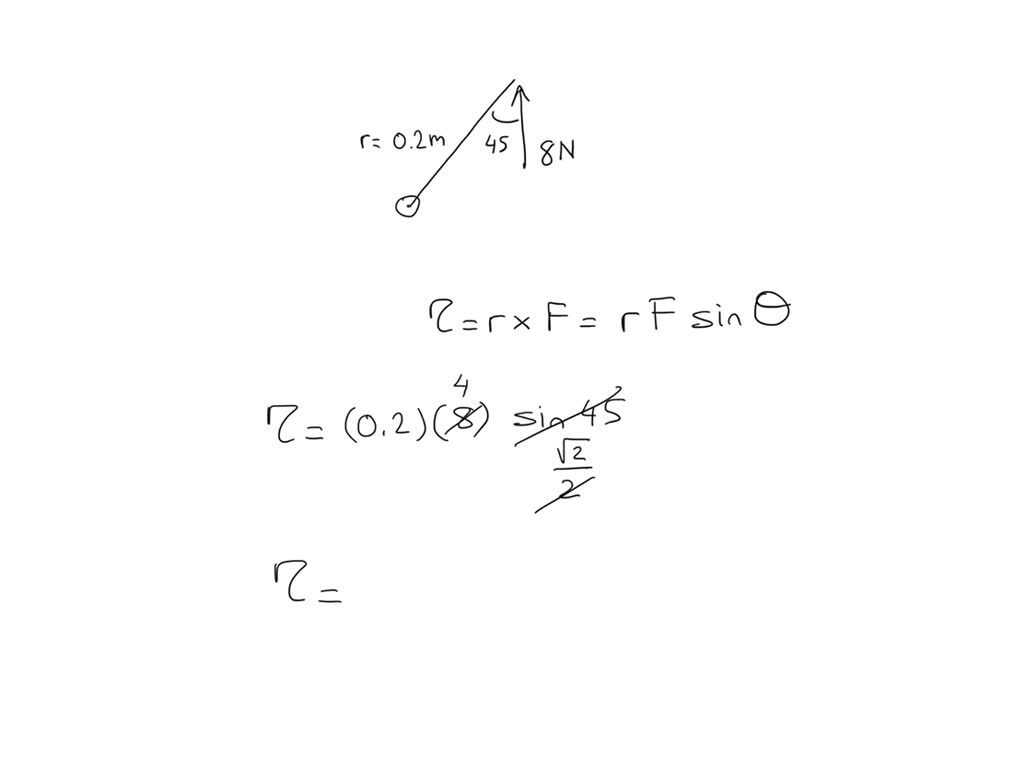 r= 0.2m
45
8N
τ = r × F = r F sin θ
4
τ = (0.2)(8) sin 45
√2
2
τ =